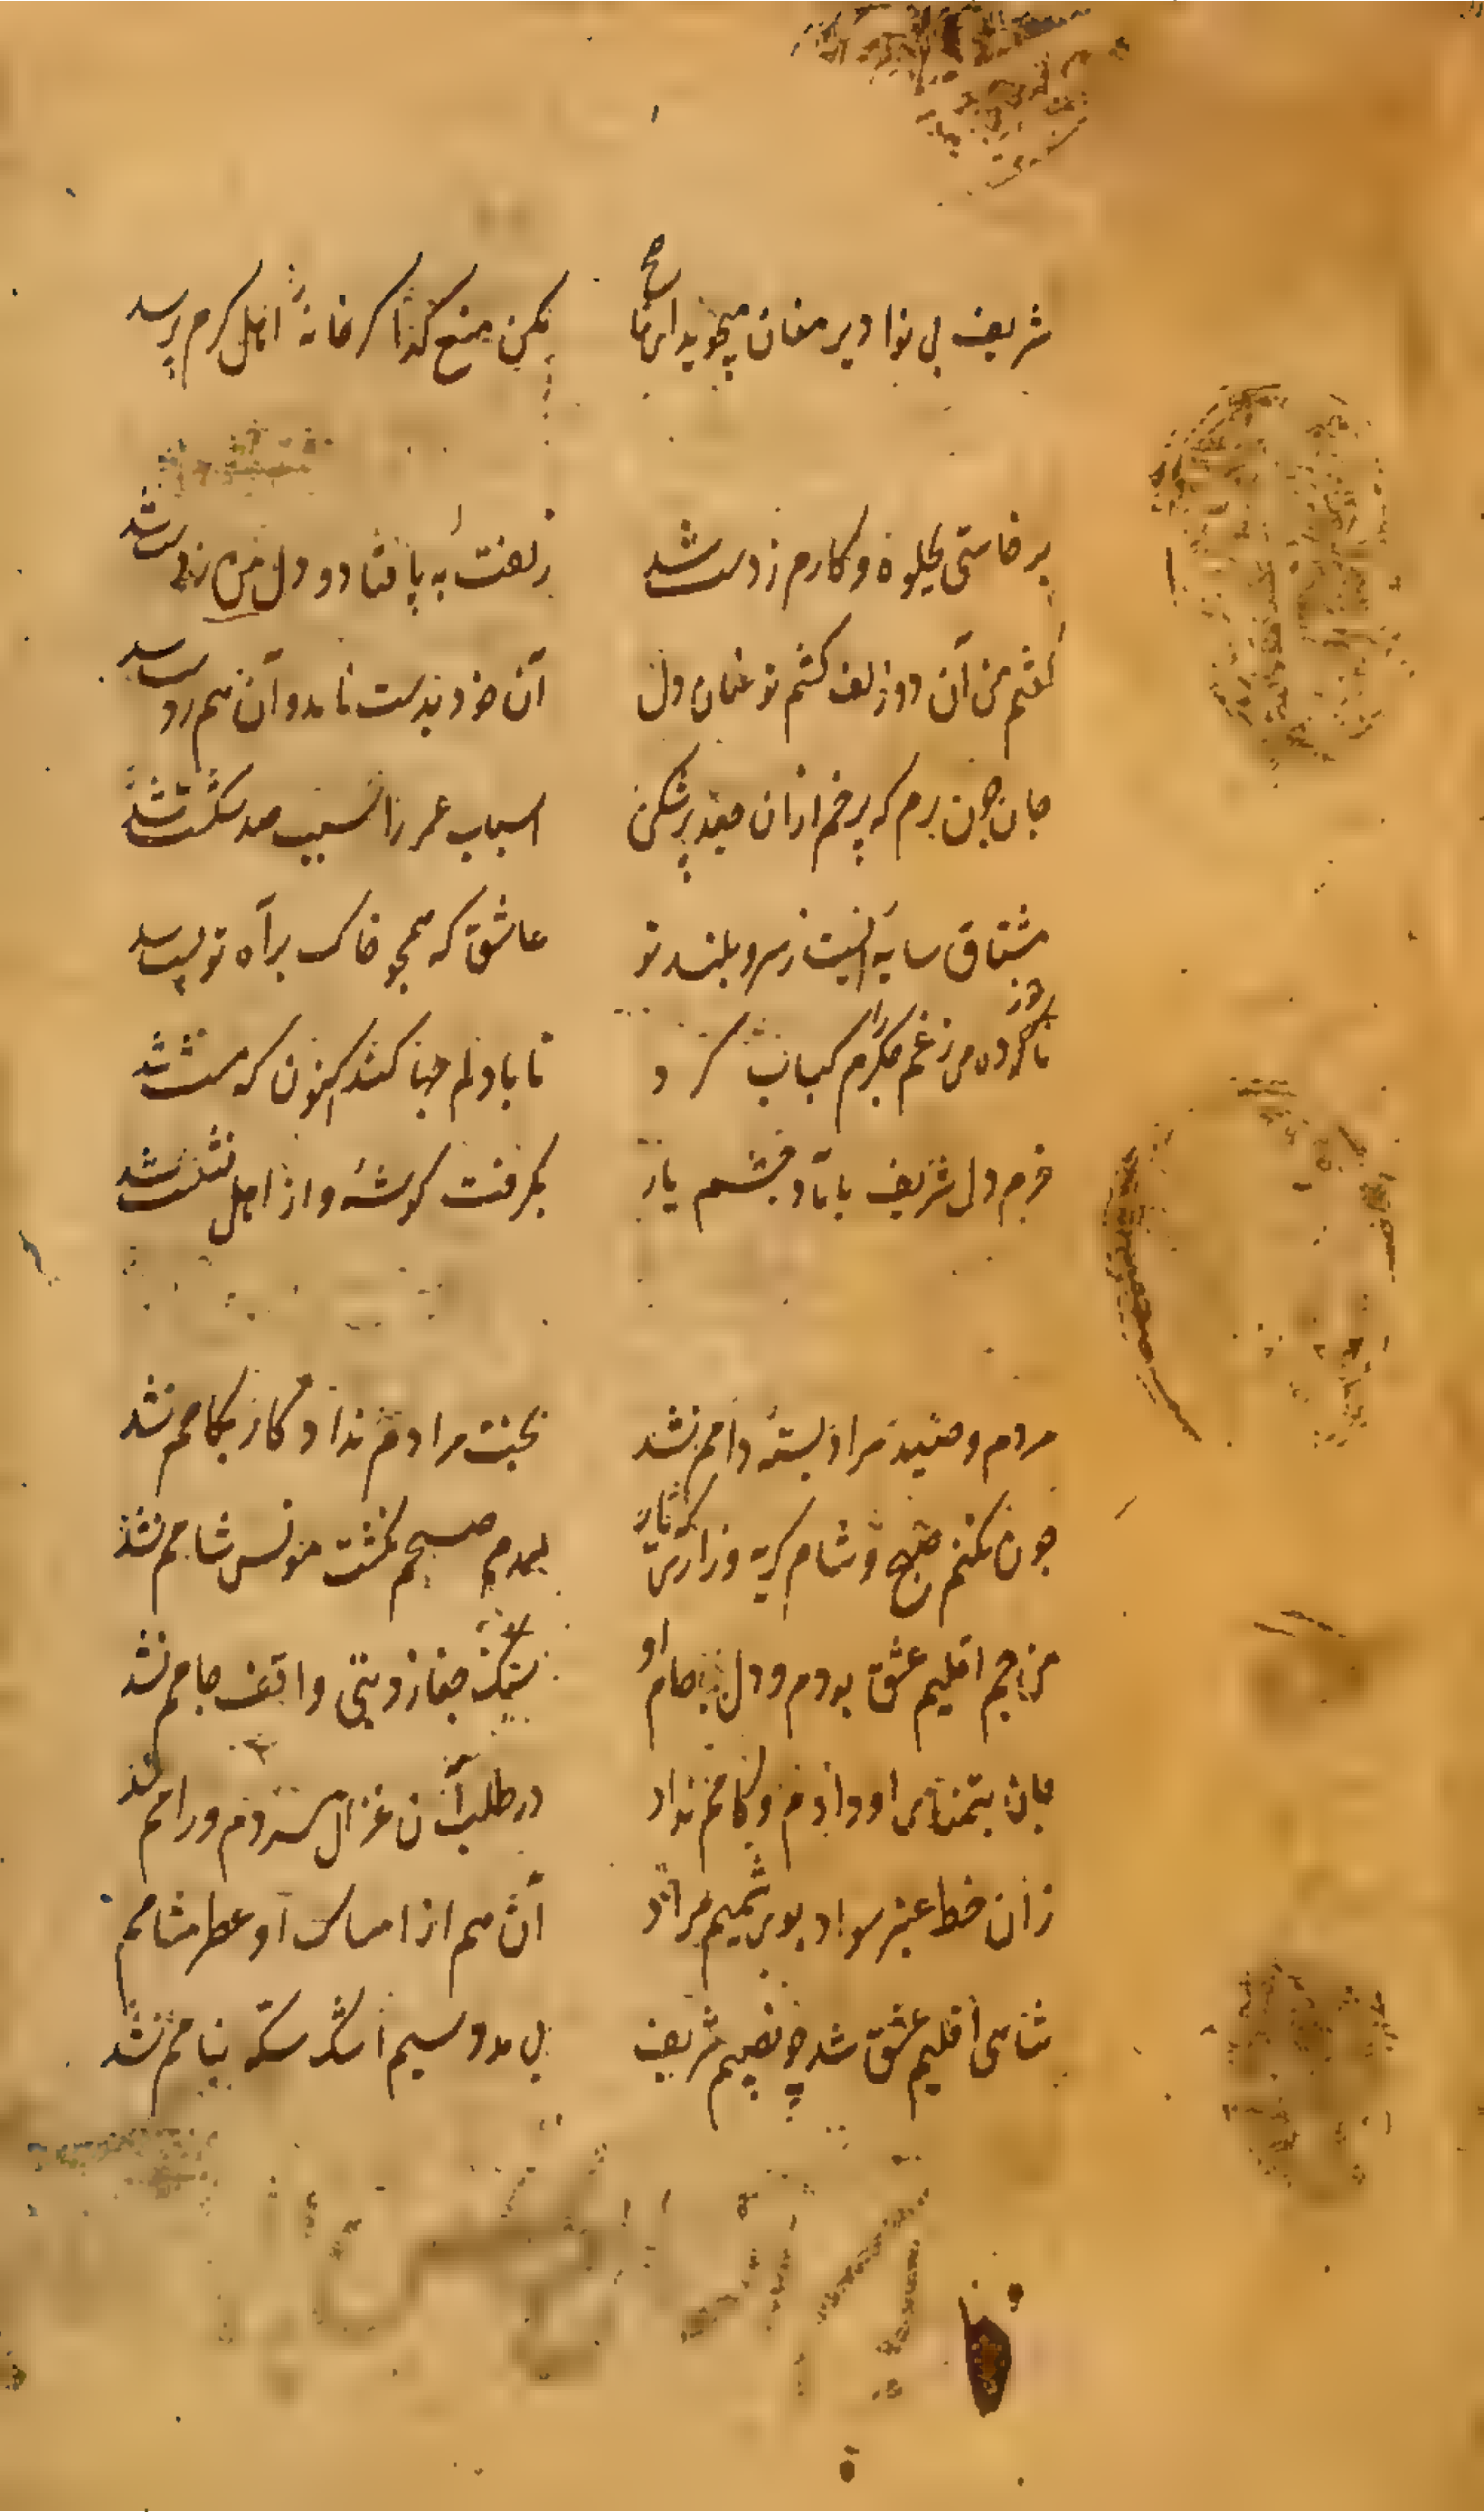 شریف بی نوا دیر مغان میجوید ای مکن منع کدا کر خانهٔ اهل کرم پرسد
برخاستی بجلوه و کارم ز دست شد زلفت به پا فتاد و دل من ز دست شد
کفتم من آن دو زلف کشم تو عنان دل آن خود بدست نامد و آن هم ز دست شد
جان چون برم که پر خم ازان صید پرشکن اسباب عمر را نسبب صد شکست شد
مشتاق سایه ایست ز سرو بلند تو عاشق که همچو خاک براه تو پست شد
ناکرده می ز غم جکرم را کباب کرد تا با دلم چها کند اکنون که مست شد
خرم دل شریف بیاد دو چشم یار بکرفت کوشهٔ و از اهل نشست شد
مردم و صید مراد بستهٔ دامم نشد بخت مرادم نداد کار بکامم نشد
چون نکنم صبح و شام کریه و زاری که یار همدم صبحم نکشت مونس شامم نشد
من جم اقلیم عشق بودم و دل جام او سنک جفا زد بتی واقف جامم نشد
جان بتمنای او دادم و کامم نداد در طلب آن غزال مردم و رامم نشد
زان خط عنبر سواد بوی شمیم مراد آن هم از امساک او عطر مشامم
شاهی اقلیم عشق شد چو نصیبم شریف بی مدد سیم اشک سکه بنامم نشد